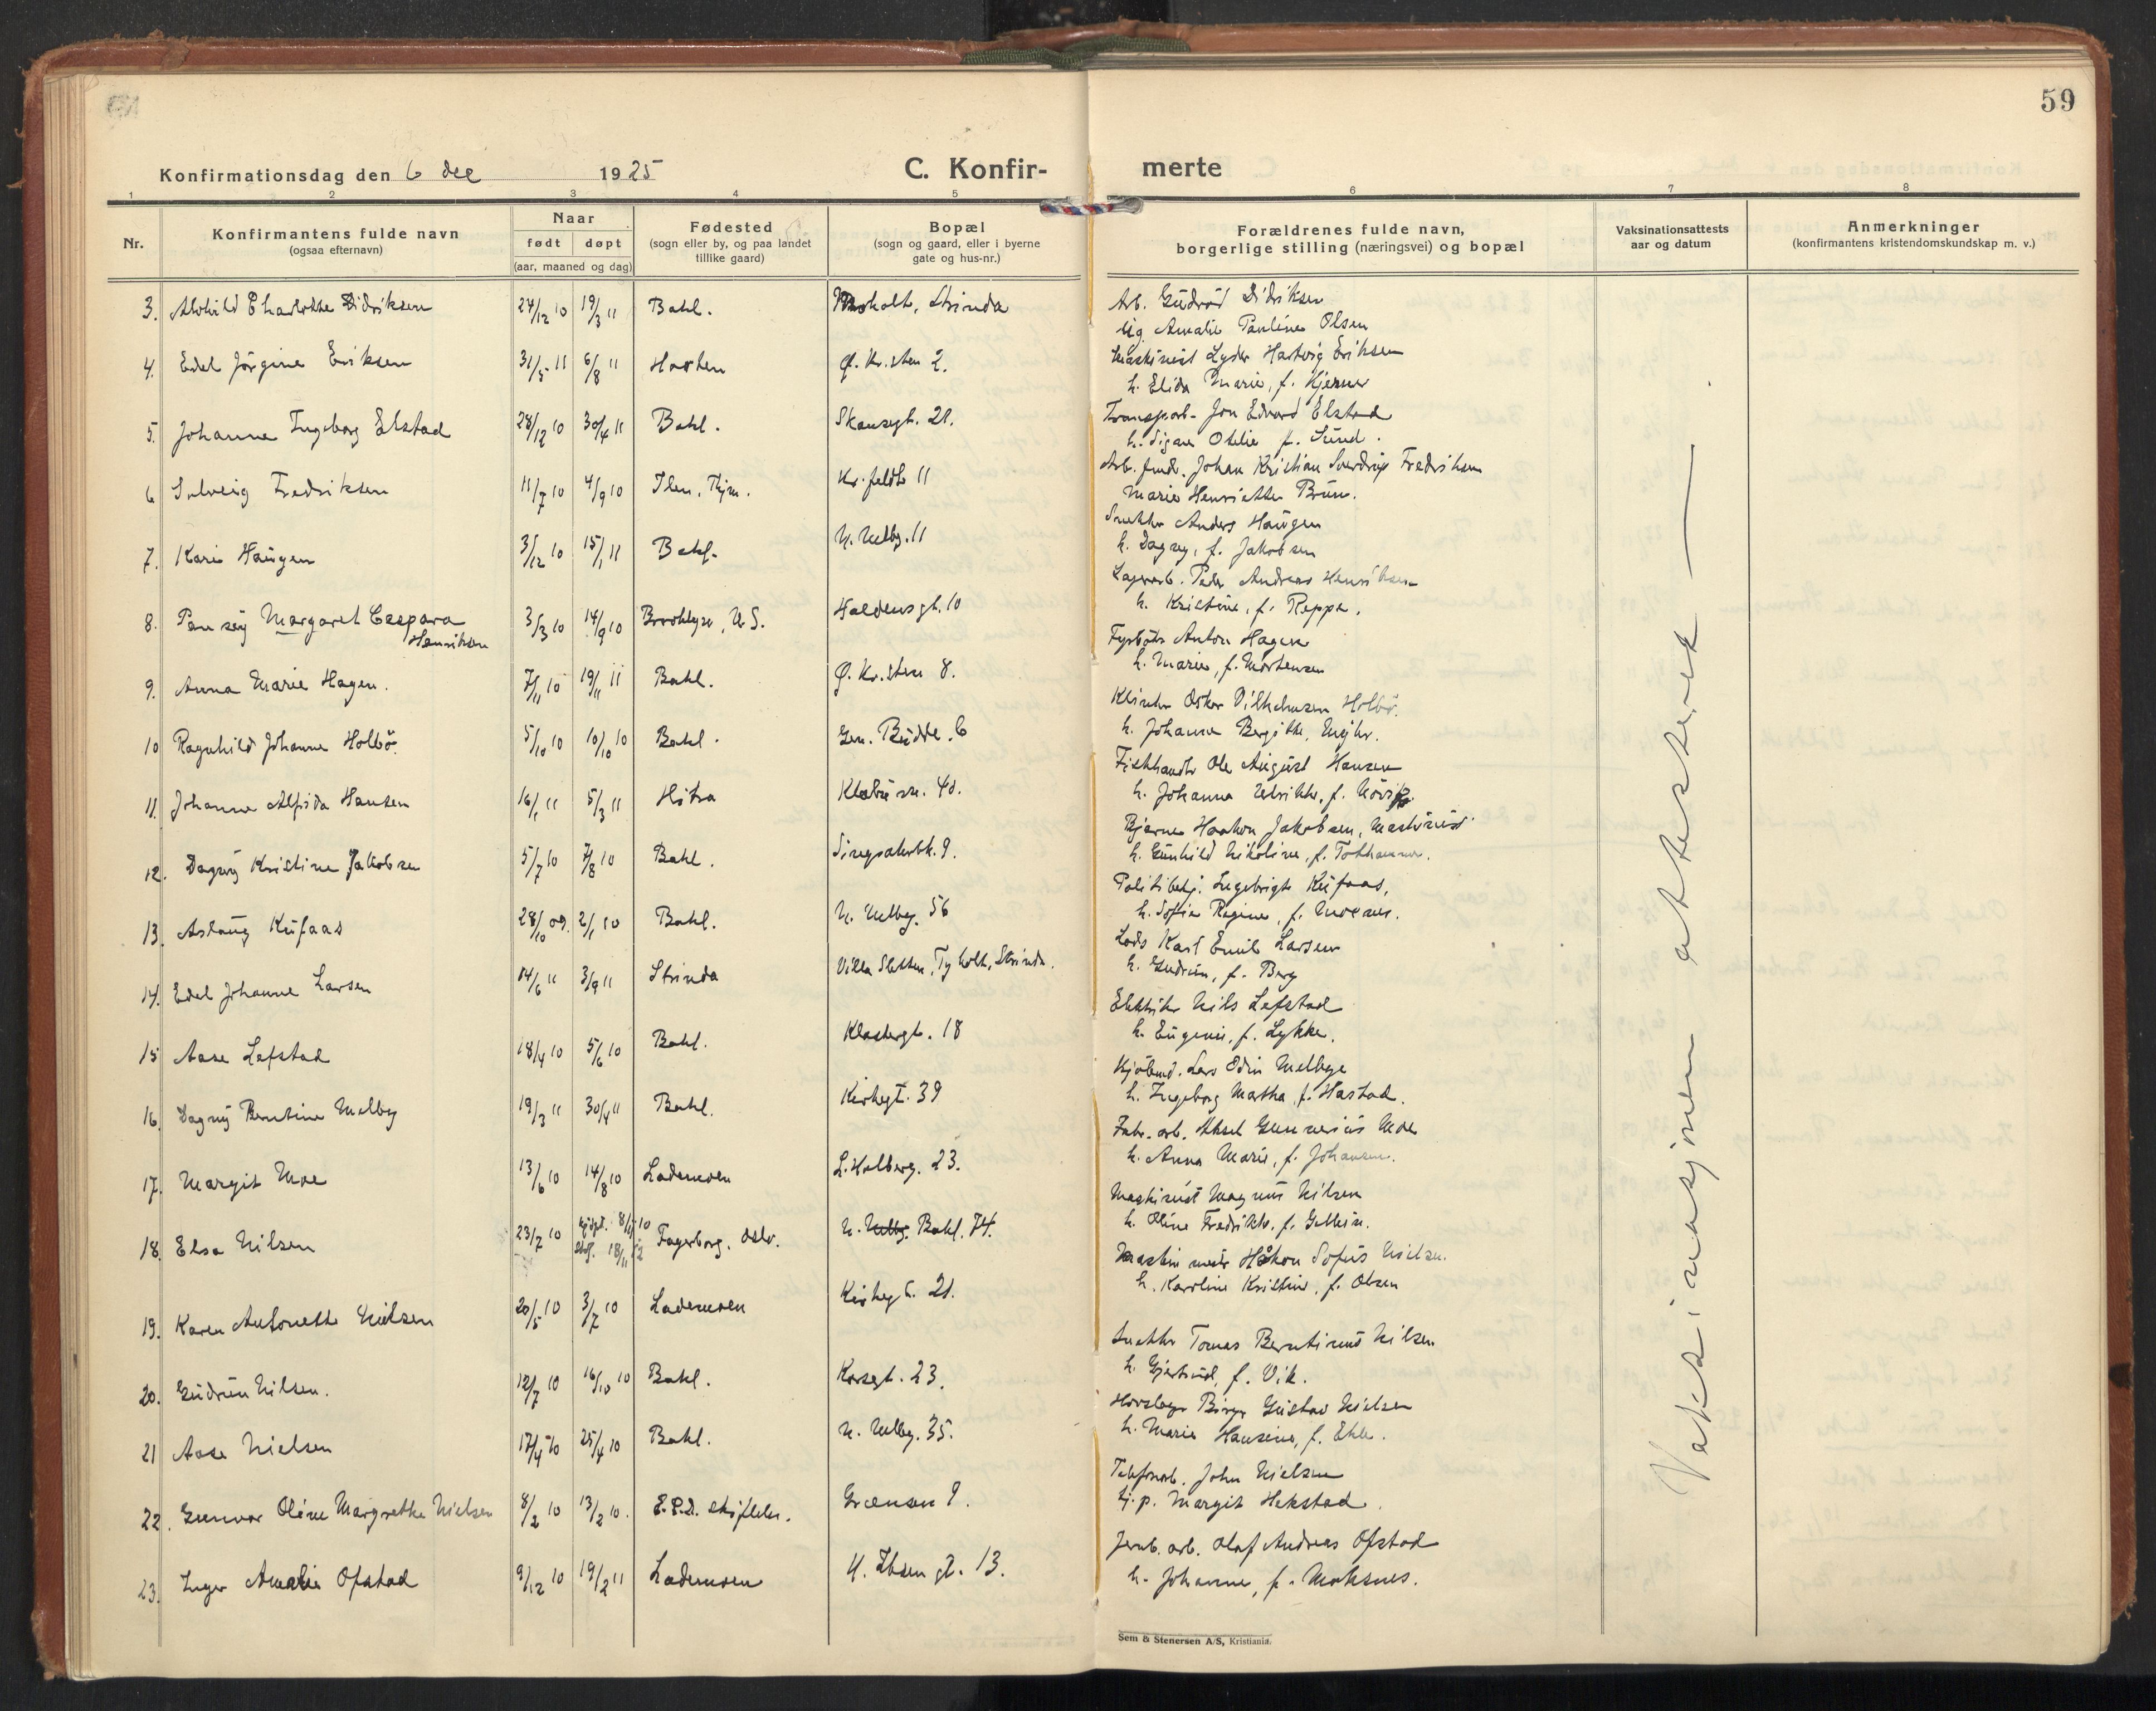 59
Konfirmationsdag den 6 dec 1925
C. Konfir-
merte
1 2 3 4 5 6 7 8
Nr.
Konfirmantens fulde navn
(ogsaa efternavn)
Naar
født døpt
(aar, maaned og dag)
Fødested
(sogn eller by, og paa landet
tillike gaard)
Bopæl
(sogn og gaard, eller i byerne
gate og hus-nr.)
Forældrenes fulde navn,
borgerlige stilling (næringsvei) og bopæl
Vaksinationsattests
aar og datum
Anmerkninger
(konfirmantens kristendomskundskap m. v.)
3. Charlotte Didriksen 27/12 10 19/3 11 Bakl. Strinda
Arb. Gudrød Didriksen
ug. Amalie Pauline Olsen
4. Edel Jørgine Eriksen 31/5 11 6/8 11 Horten Ø. Kr.sten 2.
Maskinist Lyder Hartvig Eriksen
h. Elida Marie, f. Hjerner
5. Johanne Ingeborg Elstad 28/12 10 30/4 11 Bakl. Skansegt. 21.
Transport- Jon Edvard Elstad
h. Signe Otelie f. Sund.
6 Solveig Fredriksen 11/7 10 4/9 10 Ilen, Thjm. Kr.feldts 11
Arb. Johan Kristian Sverdrup Fredriksen
Marie Henriette Brun.
7. Kari Haugen 3/12 10 15/1 11 Bakl. N. Melbg. 11
Snekker Anders Haugen
h. Dagny, f. Jakobsen
8. Margaret Caspara Henriksen 3/3 10 14/9 10 Brooklyn, U.S. Haldensgt. 10
Lagerarb. Peder Andreas Henriksen
h. Kristine, f. Reppe.
9. Anna Marie Hagen. 7/11 10 19/11 11 Bakl. Ø. Kr.sten 8.
Fyrbøter Anton Hagen
h. Marie, f. Mortensen
10 Ragnhild Johanne Holbø. 5/10 10 10/10 10 Bakl. Gen. Budde. 6
Oskar Vilhelmsen Holbø.
h. Johanne Bergitte
11. Johanne Alfrida Hansen 16/1 11 5/3 11 Hitra Klæbuvn. 40.
Fiskhandler Ole August Hansen
h. Johanna Ulrikke, f.
12. Dagny Kristine Jakobsen 5/7 10 7/8 10 Bakl. Singsakerbk. 9.
Bjarne Haakon Jakobsen, Maskinist
h. Gunhild Nikoline, f.
13. Aslaug Kufaas 28/10 09. 2/1 10 Bakl. N. Melbg. 56
Politibetj. Ingebrigt Kufaas,
h. Sofie Regine, f.
14. Edel Johanne Larsen 14/6 11 3/9 11 Strinda Villa Sletten, Tyholt, Strinda.
Lods Karl Emil Larsen
h. Gudrun, f. Berg
15 Aase Lefstad 18/4 10 5/6 10 Bakl. Klostergt. 18
Elektriker Nils Lefstad
h. Eugenie, f. Lykke.
16. Dagny Berntine Melby 19/3 11 30/4 11 Bakl. Kirkegt. 39
Kjøbmd. Lars Edin Melbye
h. Ingeborg Martha, f. Hastad.
17. Margit Moe 13/6 10 14/8 10 Lademoen L. Holberg. 23.
Fabr. arb. Aksel Gunnerius Moe
h. Anna Marie, f. Johansen.
18. Elsa Nilsen 23/7 10 Fagerborg. Oslo. N. Bakl. 74.
Maskinist Magnus Nilsen
h. Oline Fredrikke, f.
19. Karen Antonette Nielsen 20/5 10 3/7 10 Lademoen Kirkegt. 21.
Håkon Sofus Nielsen.
h. Karoline Kristine, f. Olsen
20. Gudrun Nilsen. 12/7 10 16/10 10 Bakl. Korsgt. 23.
Snekker Tomas Berntinus Nilsen
h. Gjertrud, f. Vik.
21 Aase Nielsen 17/4 10 25/4 10 Bakl. N. Melbg. 35.
Hovslager Birger Gustav Nielsen
h. Marie Hansine, f. Ehle.
22. Gunvor Oline Margrethe Nielsen 8/2 10 13/2 10. Grensen 9.
Telefonarb. John Nielsen
Margit Hekstad.
23. Inger Amalie Ofstad 9/12 10 19/2 11 Lademoen H. Ibsen gt. 13.
Jernb. arb. Olaf Andreas Ofstad
h. Johanne, f. Moksnes.
Vaksinasjonen attestert
Sem & Stenersen A/S, Kristiania.